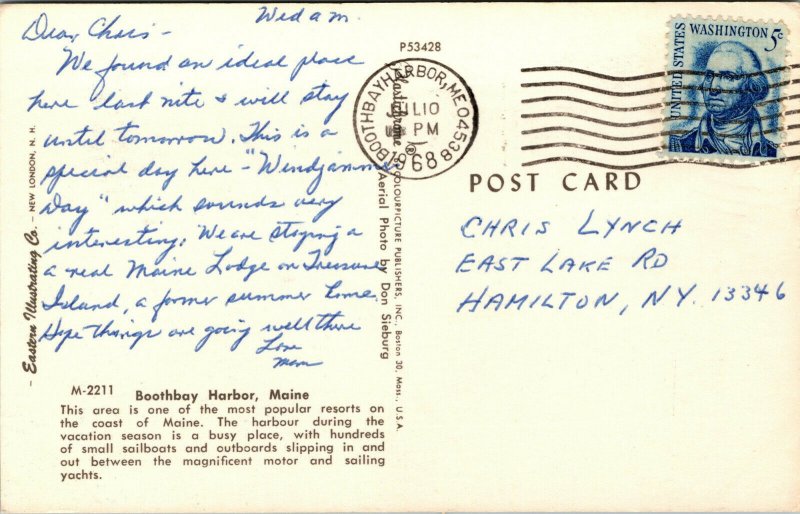 Wed am
Dear Chris-
We found an ideal place
here last nite & will stay
until tomorrow. This is a
special day here - "Windjammer
Day" which sounds very
interesting. We are staying a
a real Maine Lodge on Treasure
Island, a former summer home.
Hope things are going well there
Love
Mom
Eastern Illustrating Co. - NEW LONDON, N. H.
M-2211
Boothbay Harbor, Maine
This area is one of the most popular resorts on
the coast of Maine. The harbour during the
vacation season is a busy place, with hundreds
of small sailboats and outboards slipping in and
out between the magnificent motor and sailing
yachts.
P53428
Plastichrome ® by COLOURPICTURE PUBLISHERS, INC., Boston 30, Mass., U.S.A.
Aerial Photo by Don Sieburg
BOOTHBAY HARBOR, ME 04538
JUL 10
PM
1968
UNITED STATES
WASHINGTON 5c
POST CARD
CHRIS LYNCH
EAST LAKE RD
HAMILTON, NY. 13346